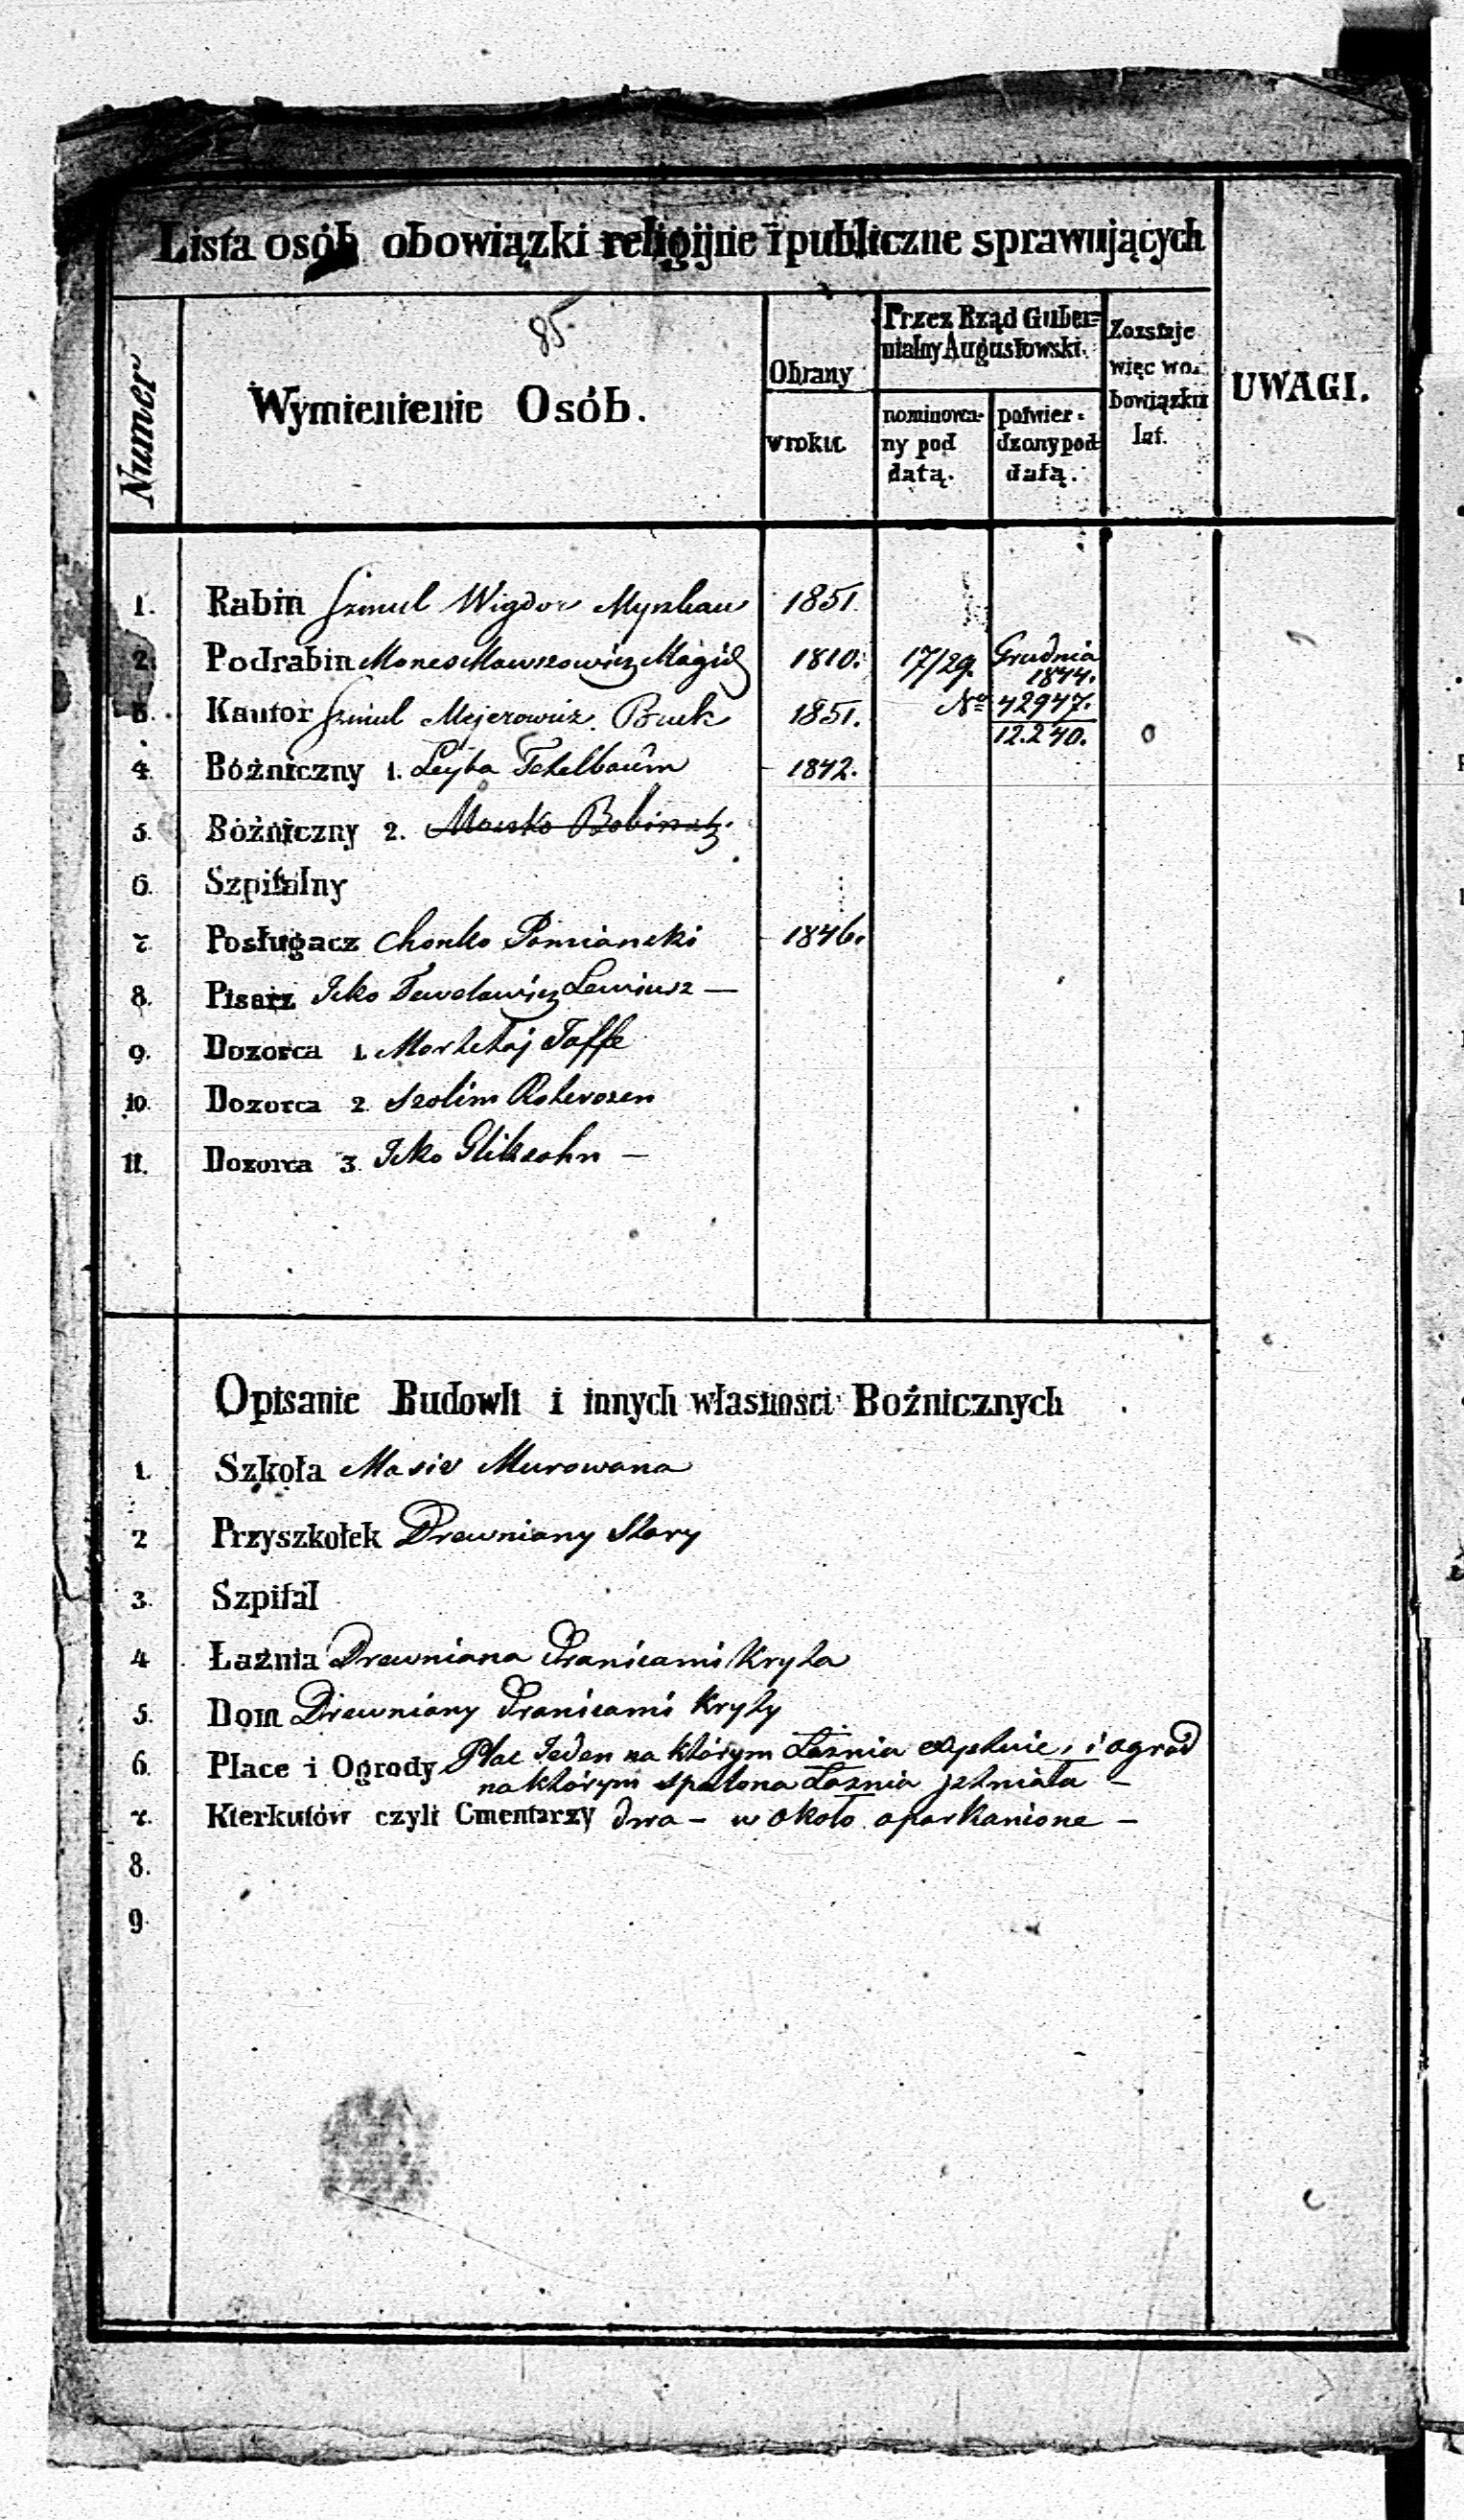 Lista osób obowiązki religijne i publiczne sprawujących
85
Numer
Wymienienie Osób.
Obrany w roku.
Przez Rząd Gubernialny Augustowski.
nominowany pod datą.
potwierdzony pod datą.
Zostaje więc w obowiązku lat.
UWAGI.
1. Rabin Szmul Wigdor 1851.
2. Podrabin Mones Mawszowicz Magid 1810. 17/29. Grudnia 1844.
3. Kantor Szmul Mejerowicz Buck 1851. No 42947. / 12.240.
4. Bóżniczny 1. Leyba Tetelbaum 1842.
5. Bóżniczny 2. Moszko
6. Szpitalny
7. Posługacz Chonko Pomianski 1846.
8. Pisarz Icko Lewinsz —
9. Dozorca 1. Mortchaj Jaffe
10. Dozorca 2. Szolim Roterozen
11. Dozorca 3. Icko Glikzohn —
Opisanie Budowli i innych własności Bożnicznych
1. Szkoła Masiv Murowana
2 Przyszkołek Drewniany Stary
3. Szpital
4 Łaźnia Drewniana Dranicami Kryta
5. Dom Drewniany Dranicami Kryty
6. Place i Ogrody Plac Jeden na którym Łaznia i ogrod
na którym spalona Łaznia jstniała —
7. Kierkutów czyli Cmentarzy dwa — w około oparkanione —
8.
9.